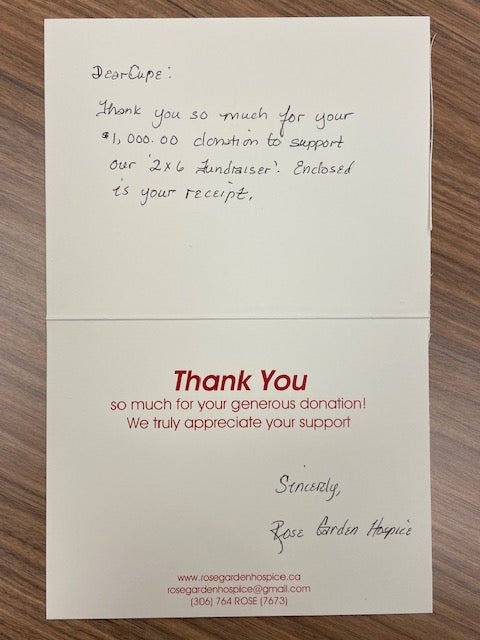 Dear Cupe:
Thank you so much for your
$1,000.00 donation to support
our '2x6 Fundraiser'. Enclosed
is your receipt.
Thank You
so much for your generous donation!
We truly appreciate your support
Sincerly,
Rose Garden Hospice
www.rosegardenhospice.ca
rosegardenhospice@gmail.com
(306) 764 ROSE (7673)